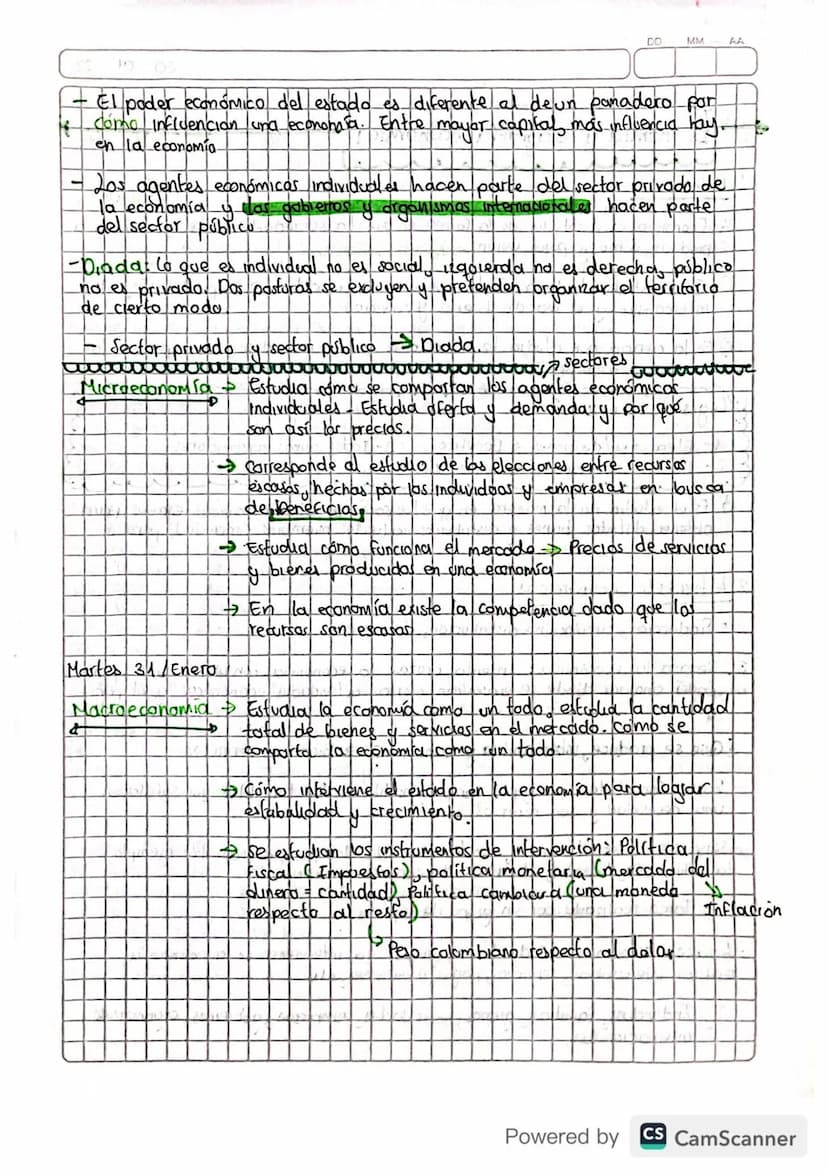 DD MM AA
- El poder económico del estado es diferente al de un panadero por
cómo influencian una economía. Entre mayor capital, más influencia hay
en la economía
- Los agentes económicos individuales hacen parte del sector privado de
la economía y los gobiernos y organismos internacionales hacen parte
del sector público
- Diada: Lo que es individual no es social, izquierda no es derecha, público
no es privado. Dos posturas se excluyen y pretenden organizar el territorio
de cierto modo.
- Sector privado y sector público → Diada.
↗ sectores
Microeconomía → Estudia cómo se comportan los agentes económicos
individuales. Estudia oferta y demanda y por qué
son así los precios.
→ Corresponde al estudio de las elecciones entre recursos
escasos, hechas por los individuos y empresas en busca
de beneficios.
→ Estudia cómo funciona el mercado → Precios de servicios
y bienes producidos en una economía
→ En la economía existe la competencia dado que los
recursos son escasos
Martes 31/Enero
Macroeconomía → Estudia la economía como un todo, estudia la cantidad
total de bienes y servicios en el mercado. Cómo se
comporta la economía como un todo
→ Cómo interviene el estado en la economía para lograr
estabalidad y crecimiento.
→ Se estudian los instrumentos de intervención: Política
Fiscal (Impuestos), política monetaria (mercado del
dinero = cantidad) Política cambiaria (una moneda
respecto al resto)
Inflación
Peso colombiano respecto al dolar
Powered by CS CamScanner